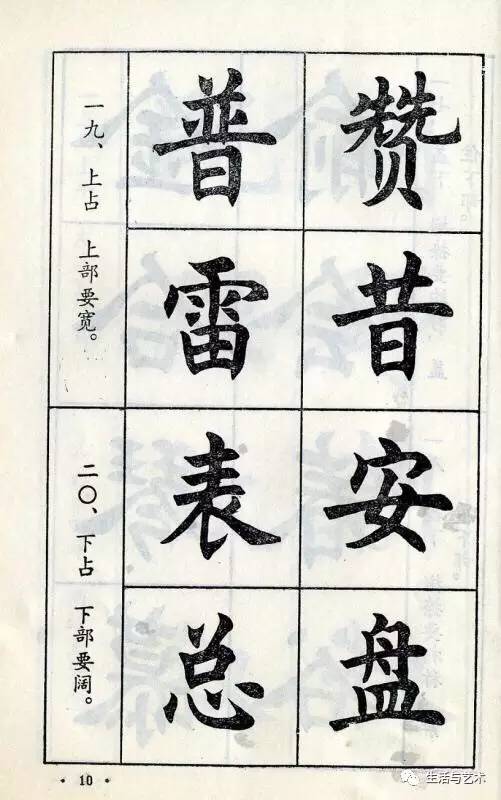 一九、上占 上部要宽。
普 赞
雷 昔
二〇、下占 下部要阔。
表 安
总 盘
· 10 ·
生活与艺术